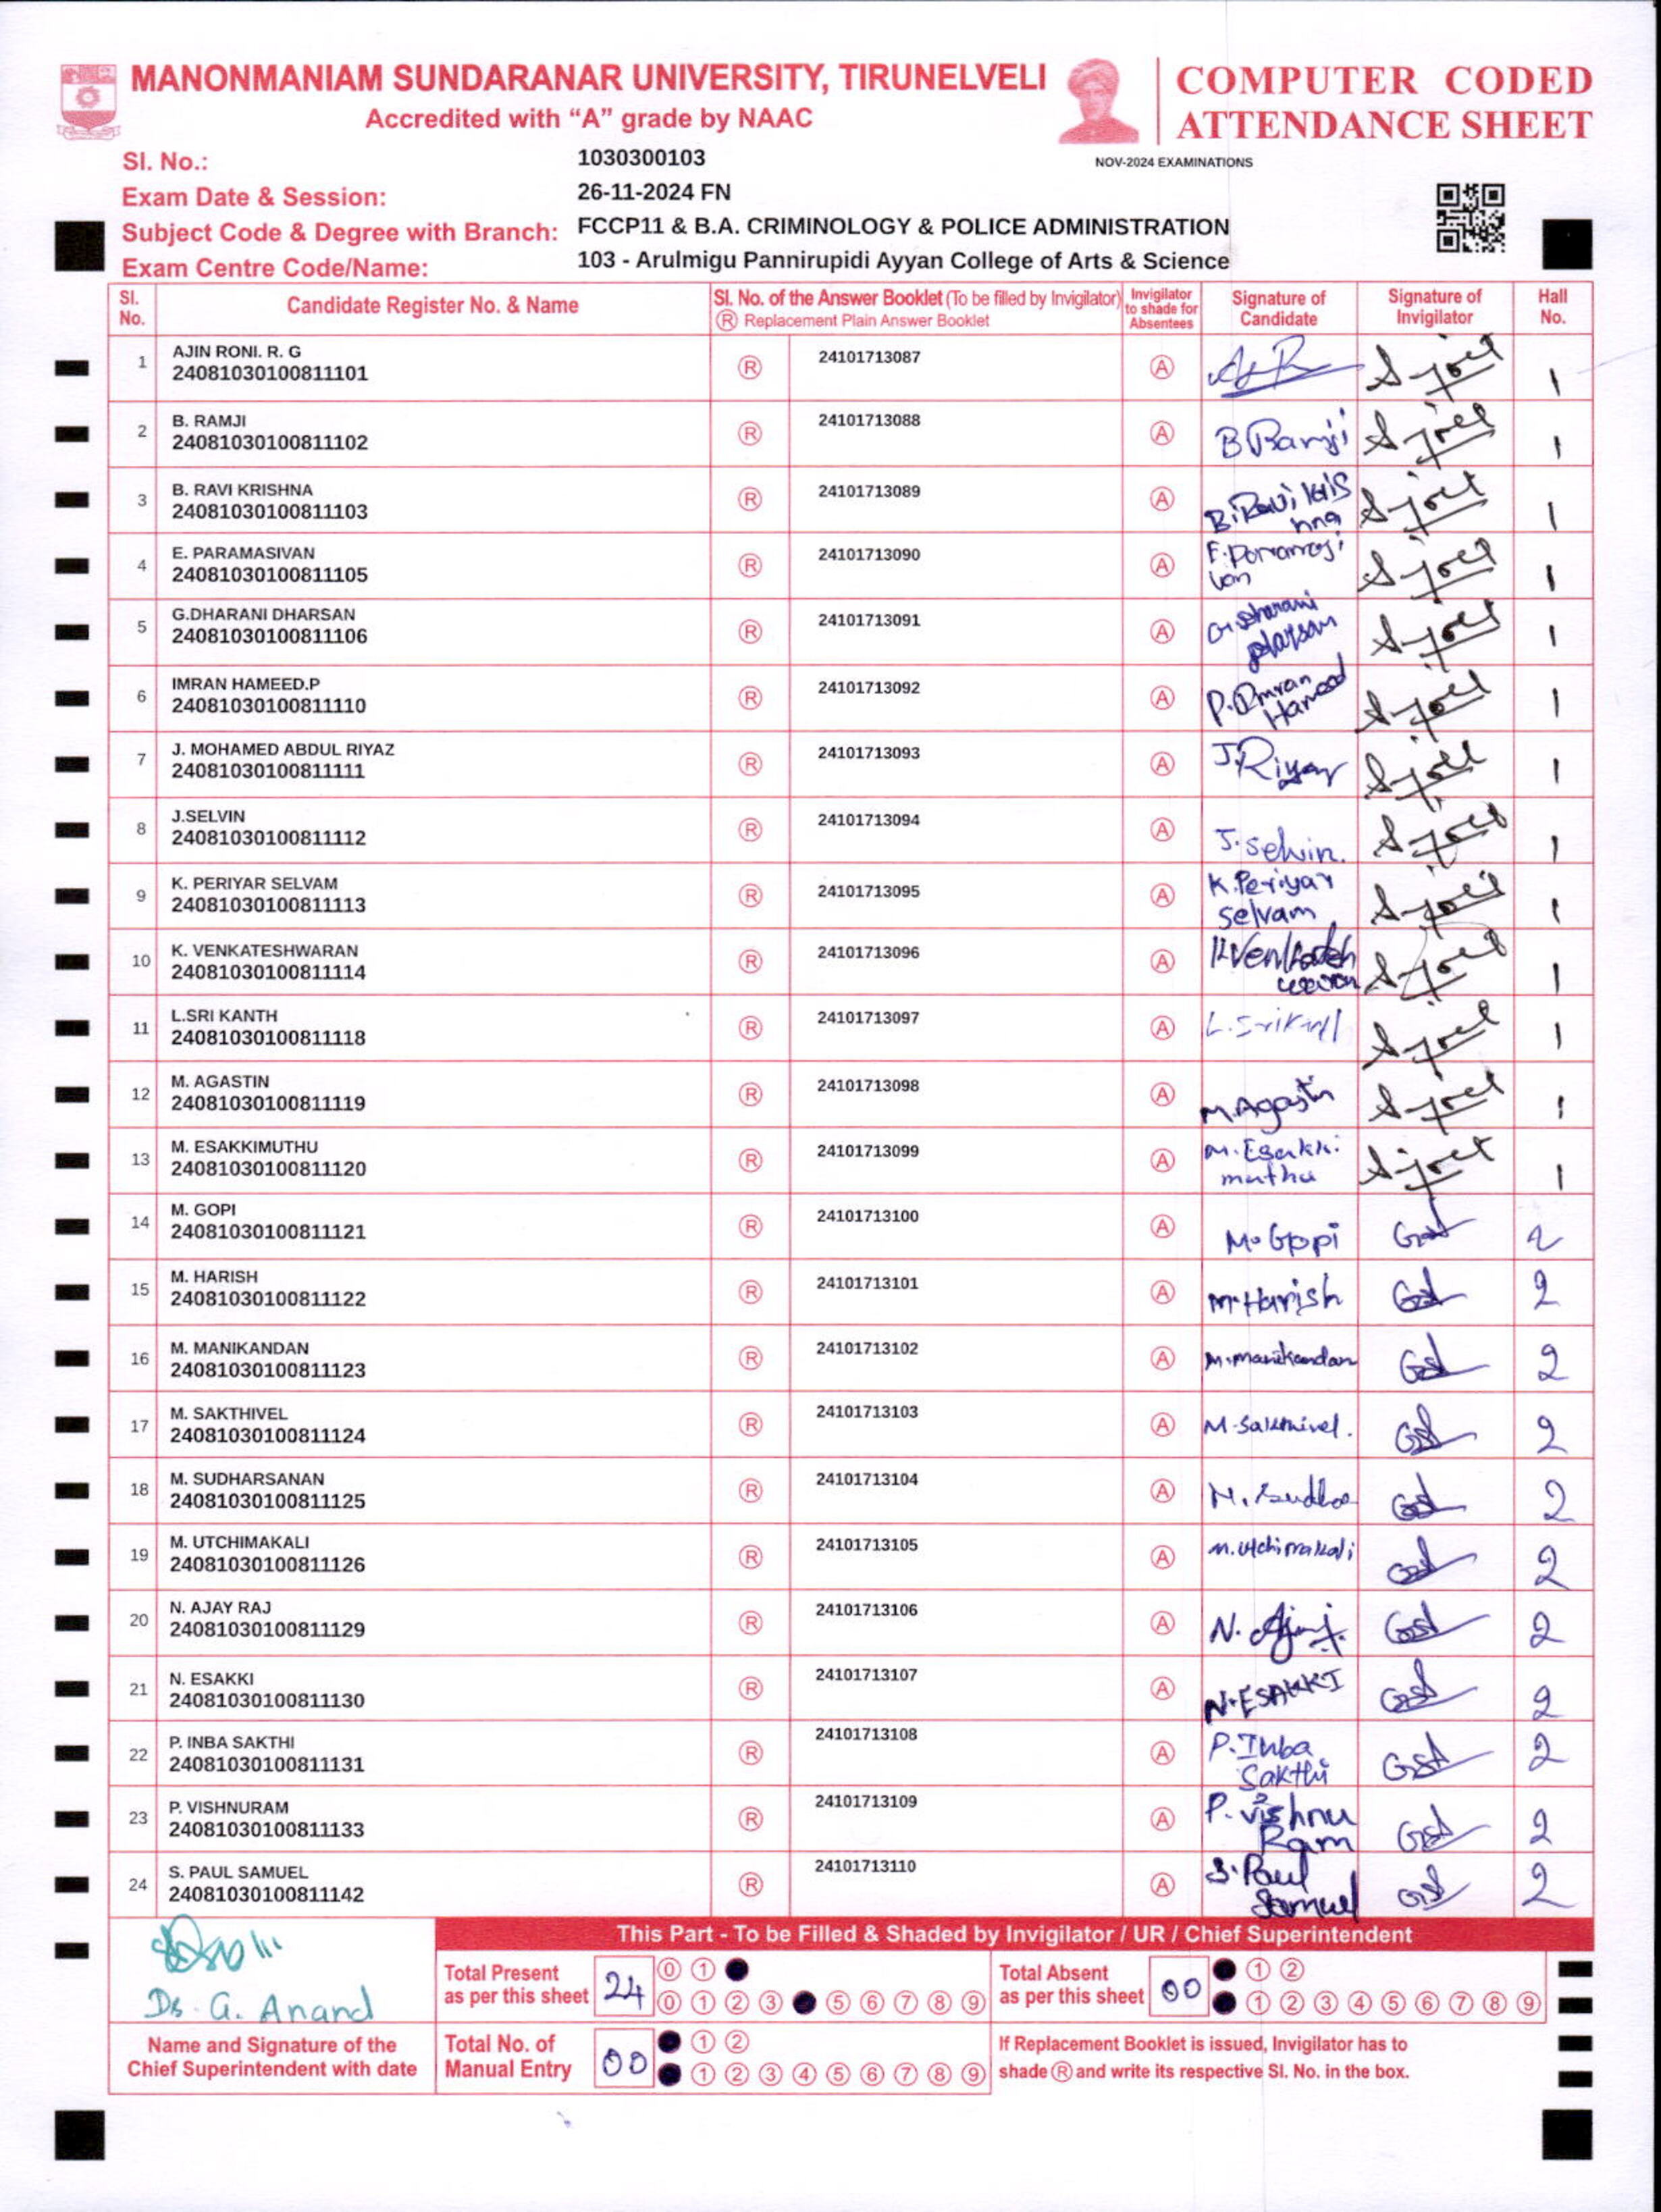 MANONMANIAM SUNDARANAR UNIVERSITY, TIRUNELVELI
Accredited with “A” grade by NAAC
COMPUTER CODED
ATTENDANCE SHEET
NOV-2024 EXAMINATIONS
Sl. No.: 1030300103
Exam Date & Session: 26-11-2024 FN
Subject Code & Degree with Branch: FCCP11 & B.A. CRIMINOLOGY & POLICE ADMINISTRATION
Exam Centre Code/Name: 103 - Arulmigu Pannirupidi Ayyan College of Arts & Science
Sl. No. Candidate Register No. & Name Sl. No. of the Answer Booklet (To be filled by Invigilator) Ⓡ Replacement Plain Answer Booklet Invigilator to shade for Absentees Signature of Candidate Signature of Invigilator Hall No.
1 AJIN RONI. R. G 24081030100811101 Ⓡ 24101713087 Ⓐ 1
2 B. RAMJI 24081030100811102 Ⓡ 24101713088 Ⓐ B Ramji S joel 1
3 B. RAVI KRISHNA 24081030100811103 Ⓡ 24101713089 Ⓐ B. Ravi kris hna S joel 1
4 E. PARAMASIVAN 24081030100811105 Ⓡ 24101713090 Ⓐ S joel 1
5 G.DHARANI DHARSAN 24081030100811106 Ⓡ 24101713091 Ⓐ S joel 1
6 IMRAN HAMEED.P 24081030100811110 Ⓡ 24101713092 Ⓐ P. Imran Hameed S joel 1
7 J. MOHAMED ABDUL RIYAZ 24081030100811111 Ⓡ 24101713093 Ⓐ J. Riyaz S joel 1
8 J.SELVIN 24081030100811112 Ⓡ 24101713094 Ⓐ J. Selvin. S joel 1
9 K. PERIYAR SELVAM 24081030100811113 Ⓡ 24101713095 Ⓐ K. Periyar Selvam S joel 1
10 K. VENKATESHWARAN 24081030100811114 Ⓡ 24101713096 Ⓐ S joel 1
11 L.SRI KANTH 24081030100811118 Ⓡ 24101713097 Ⓐ S joel 1
12 M. AGASTIN 24081030100811119 Ⓡ 24101713098 Ⓐ M. Agastin S joel 1
13 M. ESAKKIMUTHU 24081030100811120 Ⓡ 24101713099 Ⓐ M. Esakki muthu S joel 1
14 M. GOPI 24081030100811121 Ⓡ 24101713100 Ⓐ M. Gopi 2
15 M. HARISH 24081030100811122 Ⓡ 24101713101 Ⓐ M. Harish 2
16 M. MANIKANDAN 24081030100811123 Ⓡ 24101713102 Ⓐ M. manikandan 2
17 M. SAKTHIVEL 24081030100811124 Ⓡ 24101713103 Ⓐ M. Sakthivel. 2
18 M. SUDHARSANAN 24081030100811125 Ⓡ 24101713104 Ⓐ M. Sudha 2
19 M. UTCHIMAKALI 24081030100811126 Ⓡ 24101713105 Ⓐ M. Utchimakali 2
20 N. AJAY RAJ 24081030100811129 Ⓡ 24101713106 Ⓐ 2
21 N. ESAKKI 24081030100811130 Ⓡ 24101713107 Ⓐ N. ESAKKI 2
22 P. INBA SAKTHI 24081030100811131 Ⓡ 24101713108 Ⓐ P. Inba Sakthi 2
23 P. VISHNURAM 24081030100811133 Ⓡ 24101713109 Ⓐ P. Vishnu Ram 2
24 S. PAUL SAMUEL 24081030100811142 Ⓡ 24101713110 Ⓐ S. Paul Samuel 2
This Part - To be Filled & Shaded by Invigilator / UR / Chief Superintendent
Dr. G. Anand
Name and Signature of the
Chief Superintendent with date
Total Present as per this sheet 24
0 1
0 1 2 3 5 6 7 8 9
Total Absent as per this sheet 00
1 2
1 2 3 4 5 6 7 8 9
Total No. of Manual Entry 00
1 2
1 2 3 4 5 6 7 8 9
If Replacement Booklet is issued, Invigilator has to
shade Ⓡ and write its respective Sl. No. in the box.